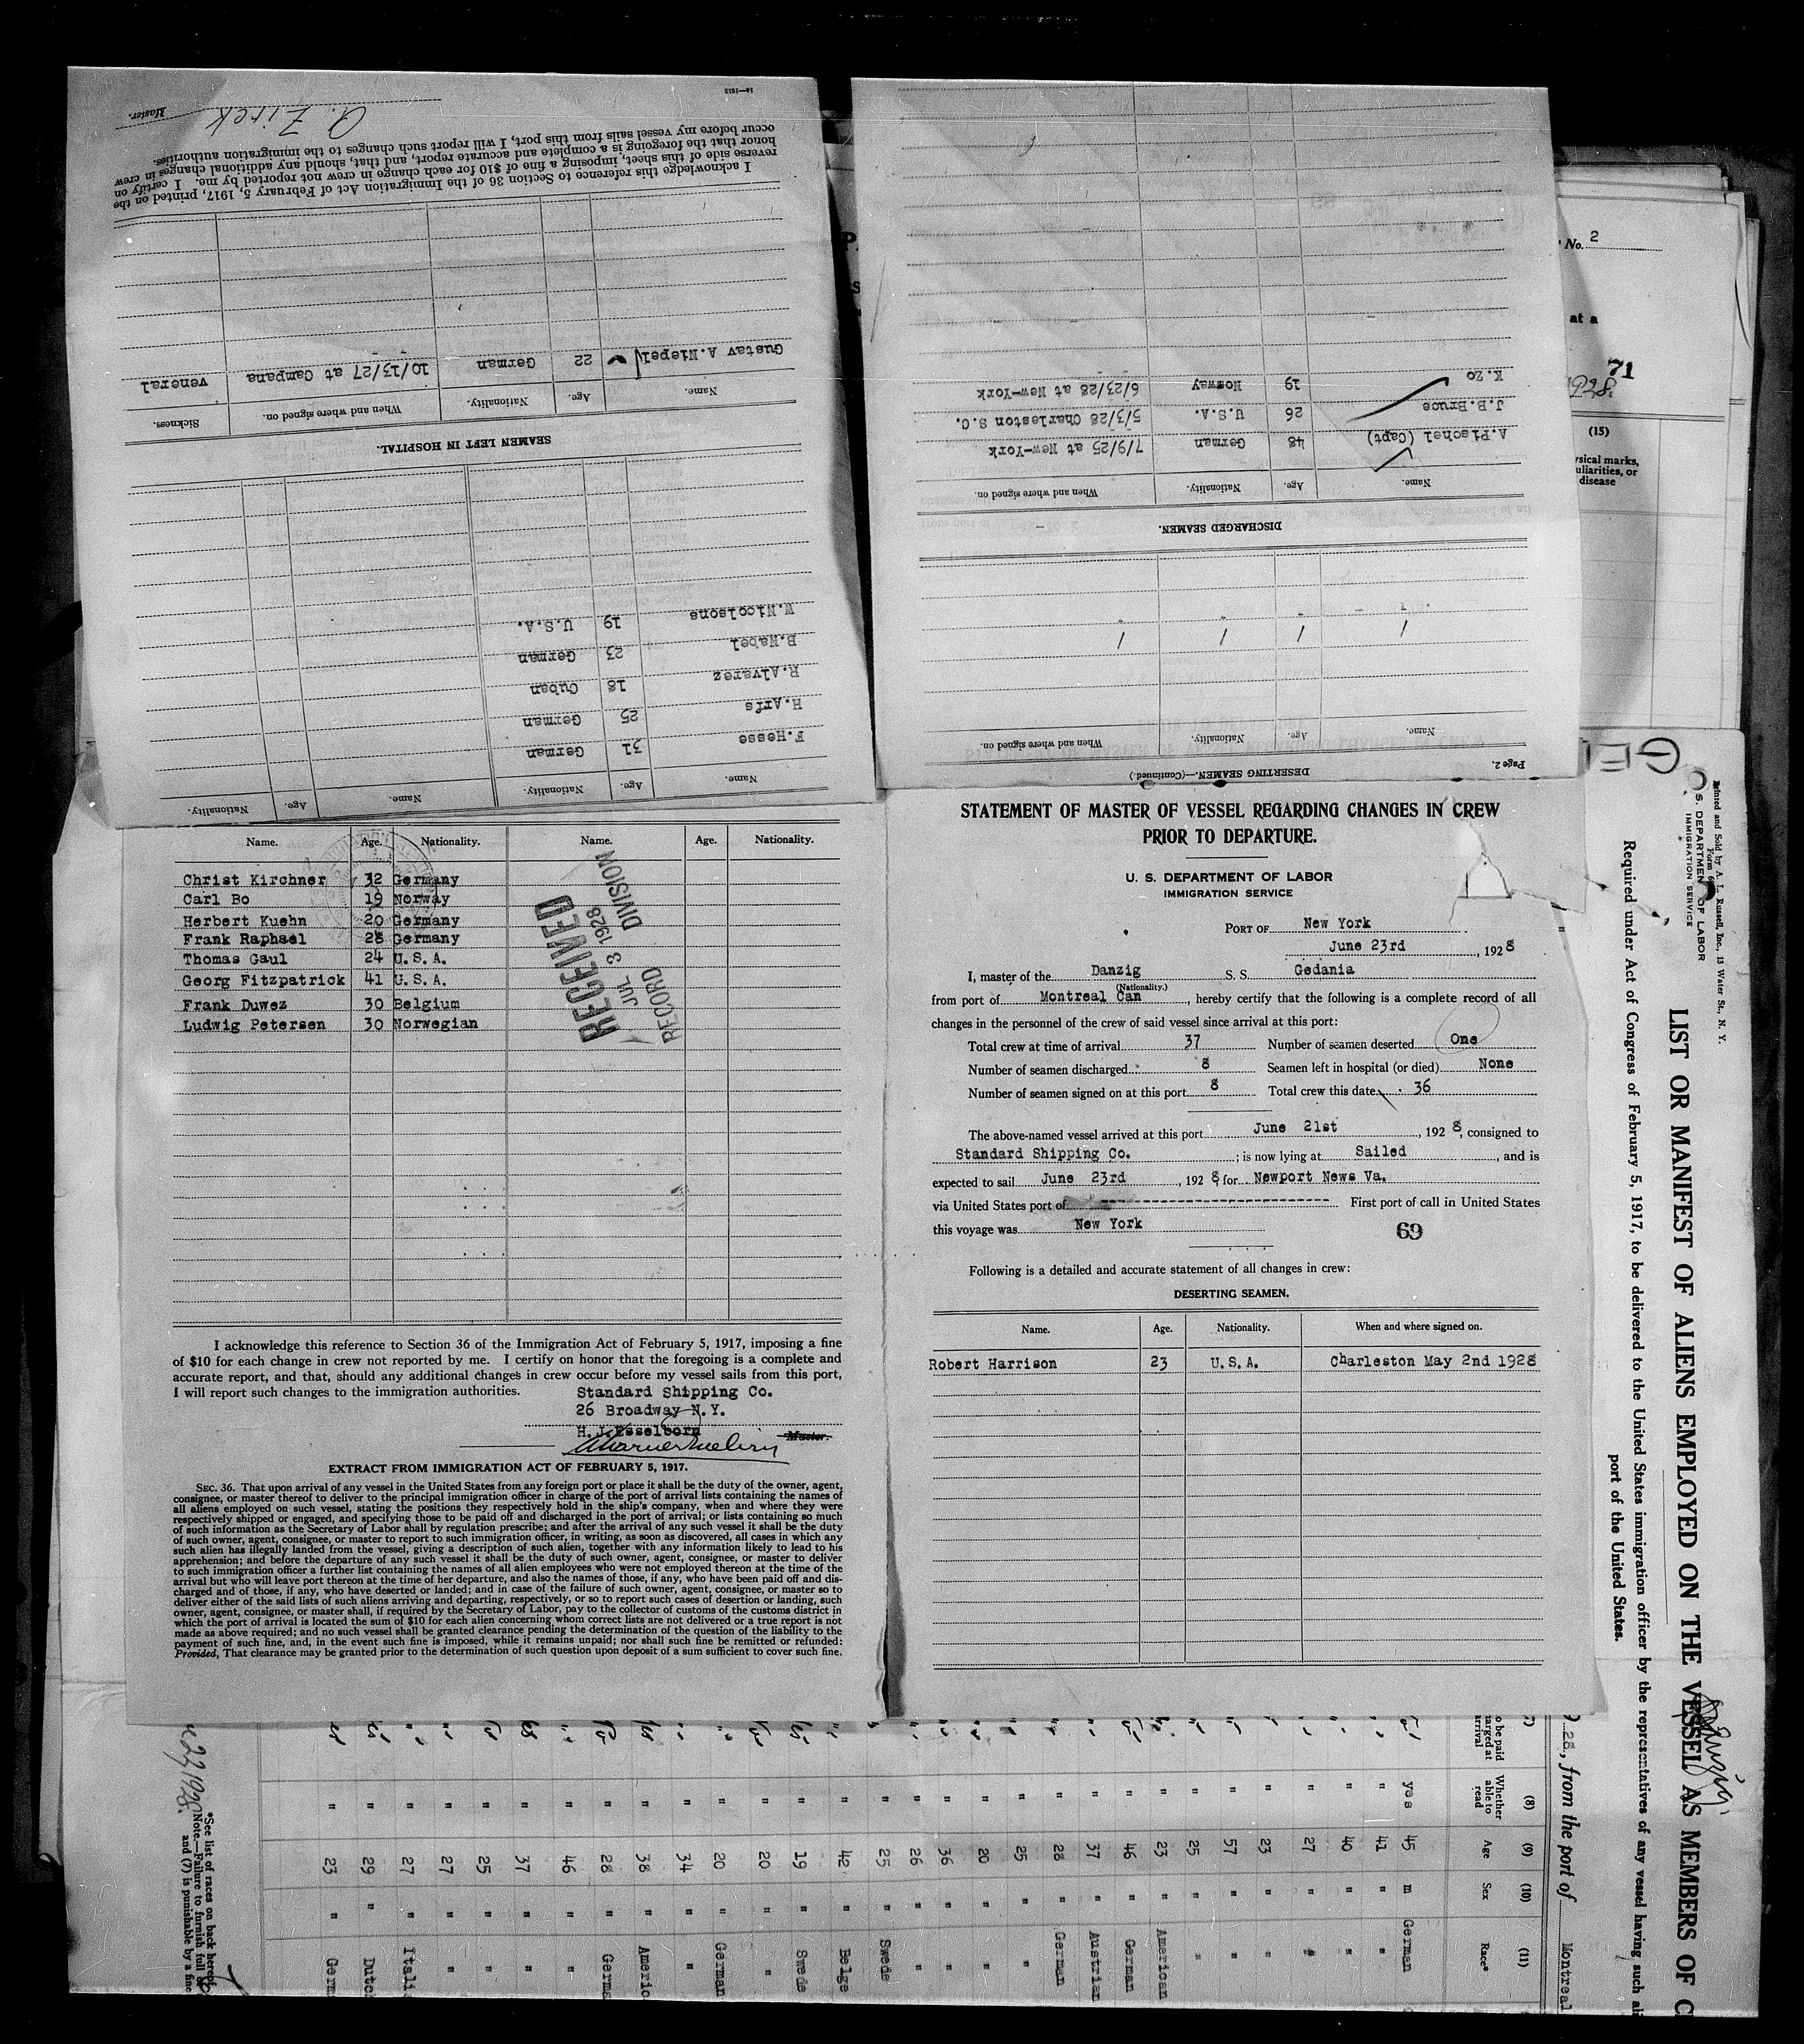 STATEMENT OF MASTER OF VESSEL REGARDING CHANGES IN CREW
PRIOR TO DEPARTURE.
U. S. DEPARTMENT OF LABOR
IMMIGRATION SERVICE
PORT OF New York
June 23rd, 1928
I, master of the Danzig S. S. Gedania
(Nationality.)
from port of Montreal Can, hereby certify that the following is a complete record of all
changes in the personnel of the crew of said vessel since arrival at this port:
Total crew at time of arrival 37 Number of seamen deserted One
Number of seamen discharged 8 Seamen left in hospital (or died) None
Number of seamen signed on at this port 8 Total crew this date 36
The above-named vessel arrived at this port June 21st, 1928, consigned to
Standard Shipping Co.; is now lying at Sailed, and is
expected to sail June 23rd, 1928, for Newport News Va.
via United States port of First port of call in United States
this voyage was New York
69
Following is a detailed and accurate statement of all changes in crew:
DESERTING SEAMEN.
Name. Age. Nationality. When and where signed on.
Robert Harrison 23 U.S.A. Charleston May 2nd 1928
Page 2.
DESERTING SEAMEN.—(Continued.)
Name. Age. Nationality. When and where signed on.
DISCHARGED SEAMEN.
Name. Age. Nationality. When and where signed on.
A.Pischel (Capt) 48 German 7/9/25 at New-York
J.B.Bruce 26 U.S.A. 5/3/28 Charleston S.C.
K.Zo 19 Norway 6/23/28 at New-York
Name. Age. Nationality. Name. Age. Nationality.
F.Hesse 31 German
H.Arfs 25 German
R.Alvarez 18 Cuban
B.Nabel 23 German
W.Nicolsons 19 U.S.A.
SEAMEN LEFT IN HOSPITAL.
Name. Age. Nationality. When and where signed on. Sickness.
Gustav A.Niepel 22 German 10/13/27 at Campana veneral
I acknowledge this reference to Section 36 of the Immigration Act of February 5, 1917, printed on the
reverse side of this sheet, imposing a fine of $10 for each change in crew not reported by me. I certify on
honor that the foregoing is a complete and accurate report, and that, should any additional changes in crew
occur before my vessel sails from this port, I will report such changes to the immigration authorities.
A. Zirck
Master.
14—1613
Name. Age. Nationality. Name. Age. Nationality.
Christ Kirchner 32 Germany
Carl Bo 19 Norway
Herbert Kuehn 20 Germany
Frank Raphael 28 Germany
Thomas Gaul 24 U.S.A.
Georg Fitzpatrick 41 U.S.A.
Frank Duwez 30 Belgium
Ludwig Petersen 30 Norwegian
RECEIVED
JUL 3 1928
RECORD DIVISION
I acknowledge this reference to Section 36 of the Immigration Act of February 5, 1917, imposing a fine
of $10 for each change in crew not reported by me. I certify on honor that the foregoing is a complete and
accurate report, and that, should any additional changes in crew occur before my vessel sails from this port,
I will report such changes to the immigration authorities.
Standard Shipping Co.
26 Broadway N.Y.
H.J.Esselborn
Master.
EXTRACT FROM IMMIGRATION ACT OF FEBRUARY 5, 1917.
SEC. 36. That upon arrival of any vessel in the United States from any foreign port or place it shall be the duty of the owner, agent,
consignee, or master thereof to deliver to the principal immigration officer in charge of the port of arrival lists containing the names of
all aliens employed on such vessel, stating the positions they respectively hold in the ship's company, when and where they were
respectively shipped or engaged, and specifying those to be paid off and discharged in the port of arrival; or lists containing so much
of such information as the Secretary of Labor shall by regulation prescribe; and after the arrival of any such vessel it shall be the duty
of such owner, agent, consignee, or master to report to such immigration officer, in writing, as soon as discovered, all cases in which any
such alien has illegally landed from the vessel, giving a description of such alien, together with any information likely to lead to his
apprehension; and before the departure of any such vessel it shall be the duty of such owner, agent, consignee, or master to deliver
to such immigration officer a further list containing the names of all alien employees who were not employed thereon at the time of the
arrival but who will leave port thereon at the time of her departure, and also the names of those, if any, who have been paid off and dis-
charged and of those, if any, who have deserted or landed; and in case of the failure of such owner, agent, consignee, or master so to
deliver either of the said lists of such aliens arriving and departing, respectively, or so to report such cases of desertion or landing, such
owner, agent, consignee, or master shall, if required by the Secretary of Labor, pay to the collector of customs of the customs district in
which the port of arrival is located the sum of $10 for each alien concerning whom correct lists are not delivered or a true report is not
made as above required; and no such vessel shall be granted clearance pending the determination of the question of the liability to the
payment of such fine, and, in the event such fine is imposed, while it remains unpaid; nor shall such fine be remitted or refunded:
Provided, That clearance may be granted prior to the determination of such question upon deposit of a sum sufficient to cover such fine.
No. 2
at a
71
(15)
ysical marks,
uliarities, or
disease
GE
Printed and Sold by A. L. Russell, Inc., 13 Water St., N. Y.
S. DEPARTMENT OF LABOR
IMMIGRATION SERVICE
LIST OR MANIFEST OF ALIENS EMPLOYED ON THE VESSEL AS MEMBERS OF C
Required under Act of Congress of February 5, 1917, to be delivered to the United States immigration officer by the representatives of any vessel having such ali
port of the United States.
28, from the port of Montreal
(7) (8) (9) (10) (11)
o be paid
arged at
arrival
Whether
able to
read
Age
Sex
Race*
yes 45 m German
" 41 " "
" 40 " "
" 27 " "
" 23 " "
" 57 " "
" 25 " "
" 23 " American
" 46 " German
" 37 " Austrian
" 28 " German
" 25 " "
" 20 " "
" 36 " "
" 26 " "
" 25 " Swede
" 42 " Belge
" 19 " Swede
" 20 " "
" 20 " German
" 34 " "
" 38 " Americ
" 28 " Germa
" 46 " "
" 37 " "
" 25 " "
" 27 " "
" 27 " Itali
" 29 " Dutc
" 23 " Germ
*See list of races on back hereof.
Note.—Failure to furnish full
and (7) is punishable by a fine